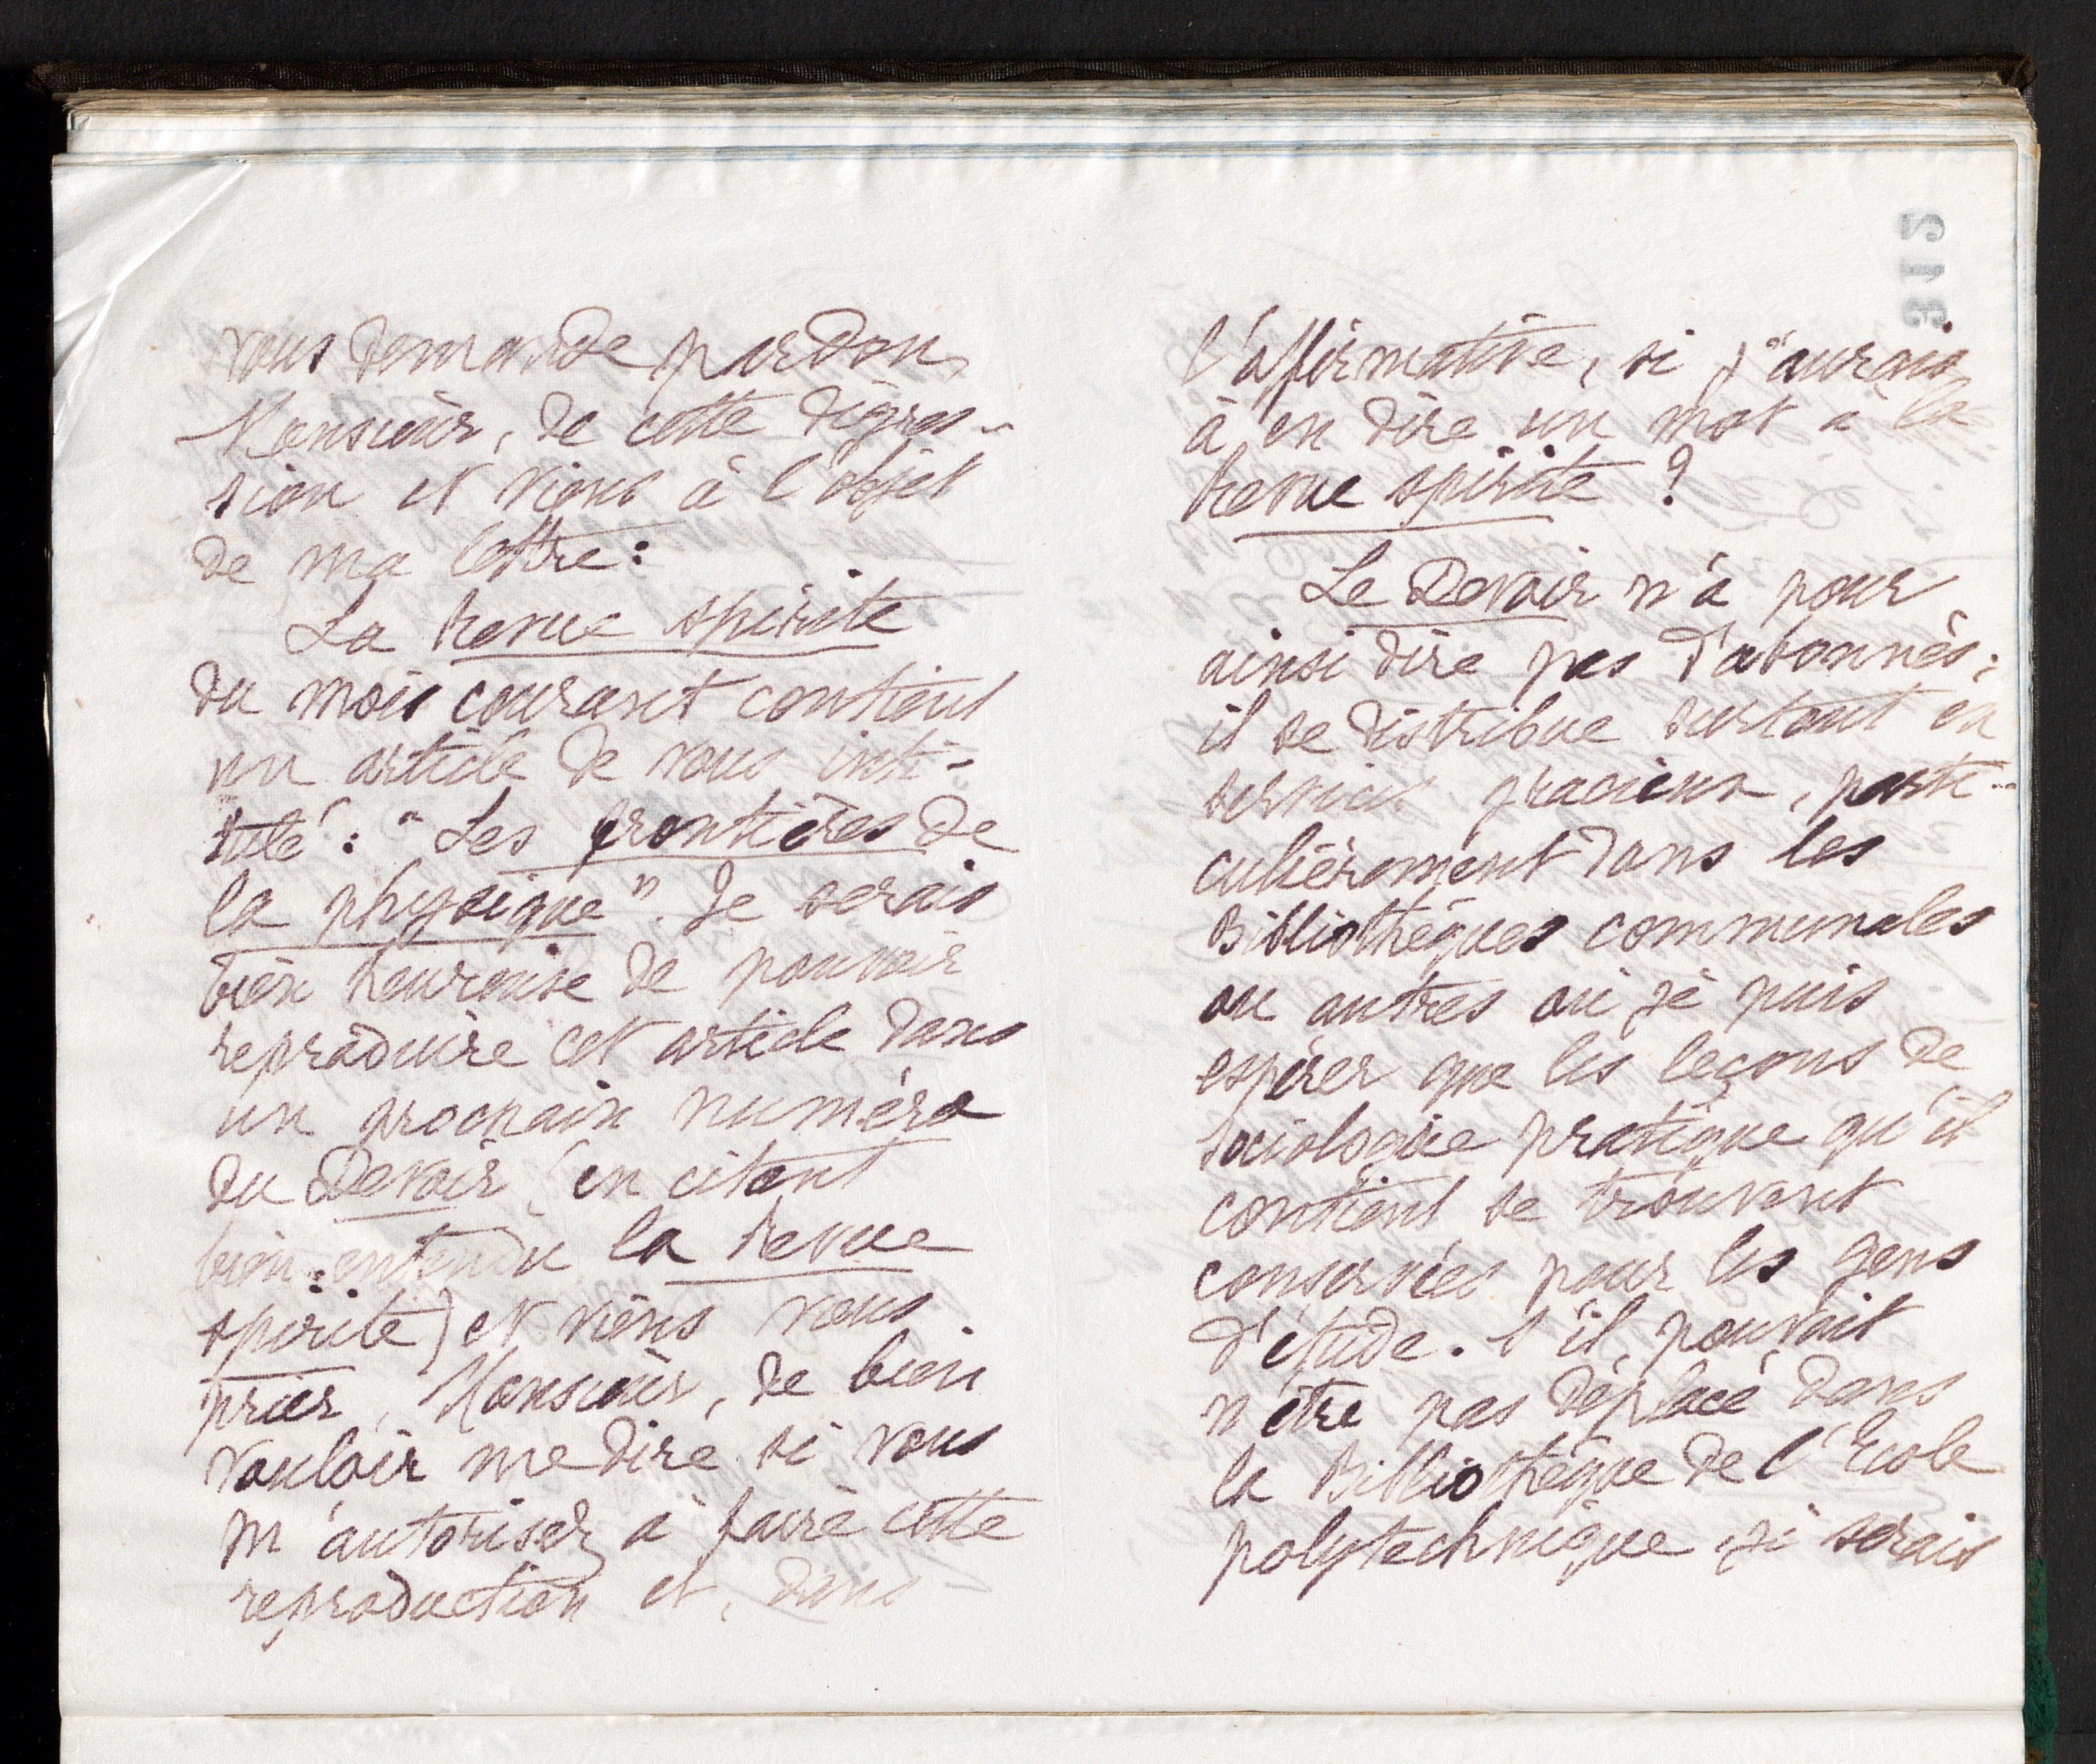 vous demande pardon,
Monsieur, de cette digres-
sion et viens à l'objet
de ma lettre :
La revue spirite
du mois courant contient
un article de vous inti-
tulé : "Les frontières de
la physique". Je serais
bien heureuse de pouvoir
reproduire cet article dans
un prochain numéro
du Devoir (en citant
bien entendu la revue
spirite) et viens vous
prier, Monsieur, de bien
vouloir me dire si vous
m'autorisez à faire cette
reproduction et, dans
312
l'affirmative, si j'aurais
à en dire un mot à la
revue spirite ?
Le Devoir n'a pour
ainsi dire pas d'abonnés ;
il se distribue surtout en
services gracieux, parti-
culièrement dans les
Bibliothèques communales
ou autres où je puis
espérer que les leçons de
sociologie pratique qu'il
contient se trouvent
conservées pour les gens
d'étude. S'il pouvait
n'être pas déplacé dans
la Bibliothèque de l'Ecole
polytechnique je serais